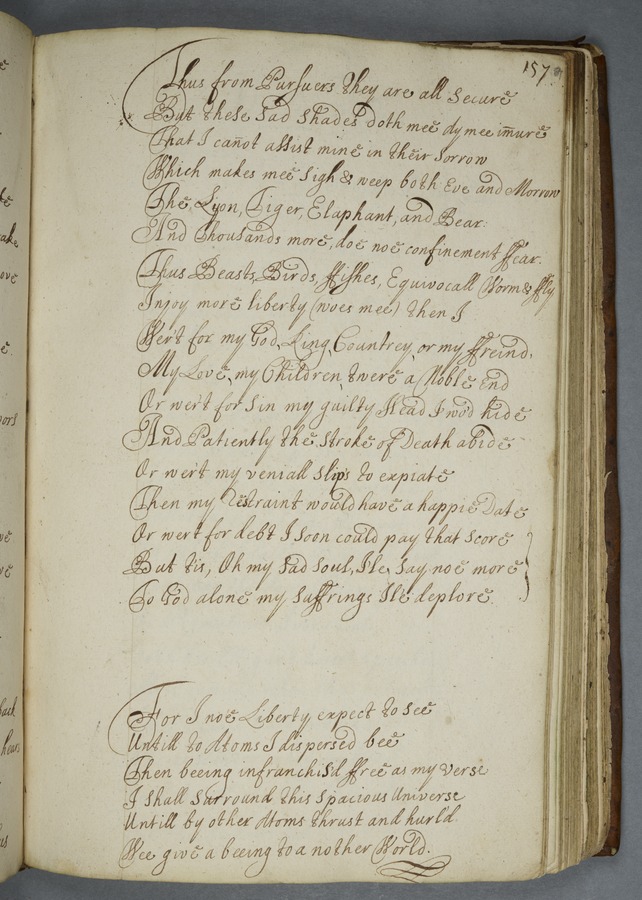 157
Thus from Pursuers they are all Secure
But these sad shades doth mee dy mee im̄ure
That I can̄ot assist mine in their Sorrow
Which makes mee Sigh & weep both Eve and Morrow
The Lyon, Tiger, Elaphant, and Bear:
And thousands more, doe noe confinement ffear.
Thus Beasts, Birds, ffishes, Equivocall Worm & ffly
Injoy more liberty (woes mee) then I
Wer't for my God, King, Countrey, or my ffreind,
My Love, my Children, twere a Noble End
Or wer't for Sin my guilty Head I wod hide
And Patiently the Stroke of Death abide
Or wer't my veniall slips to expiate
Then my Restraint would have a happie Date
Or wert for debt I soon could pay that Score
But tis, Oh my sad soul, I'le say noe more
To God alone my Suffrings I'le deplore
For I noe Liberty expect to See
Untill to Atoms I dispersed bee
Then beeing infranchis'd ffree as my Verse
I shall Surround this Spacious Universe
Untill by other Atoms thrust and hurl'd
Wee give a beeing to a nother World.